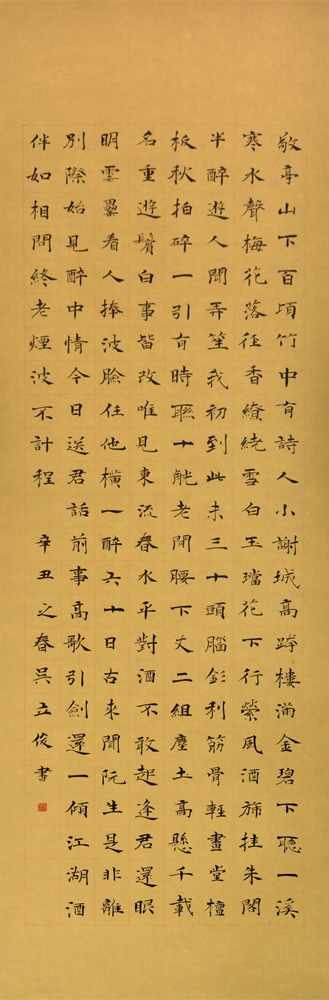 敬亭山下百頃竹中有詩人小謝城高跨樓滿金碧下聽一溪
寒水聲梅花落徑香繚繞雪白玉璫花下行縈風酒旆挂朱閣
半醉遊人聞弄笙我初到此未三十頭腦釤利筋骨輕畫堂檀
板秋拍碎一引有時聯十觥老閒腰下丈二組塵土高懸千載
名重遊鬢白事皆改唯見東流春水平對酒不敢起逢君還眼
明雲罍看人捧波臉任他橫一醉六十日古來聞阮生是非離
別際始見醉中情今日送君話前事高歌引劍還一傾江湖酒
伴如相問終老煙波不計程 辛丑之春吳立俊書